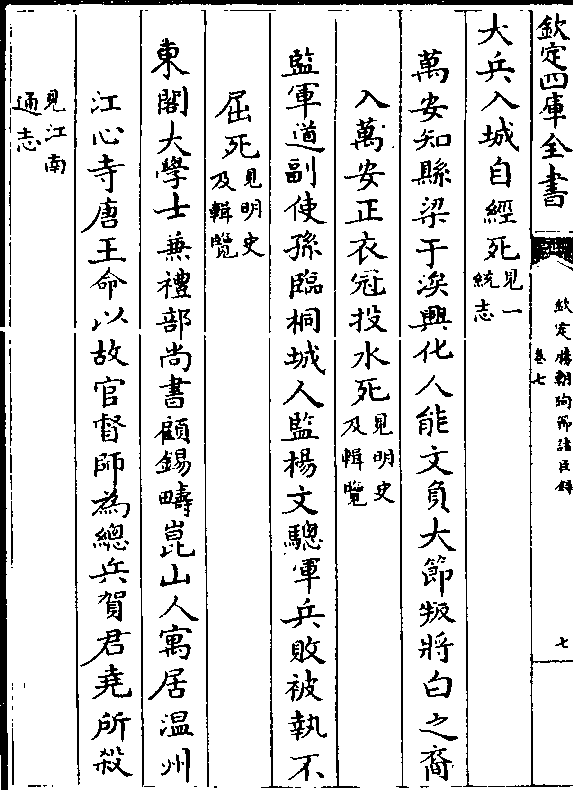 欽定四庫全書
欽定勝朝殉節諸臣錄
卷七
七
大兵入城自經死見一統志
萬安知縣梁于涘興化人能文負大節叛將白之裔
入萬安正衣冠投水死見明史及輯覽
監軍道副使孫臨桐城人監楊文驄軍兵敗被執不
屈死見明史及輯覽
東閣大學士兼禮部尚書顧錫疇崑山人寓居温州
江心寺唐王命以故官督師為總兵賀君堯所殺
見江南通志